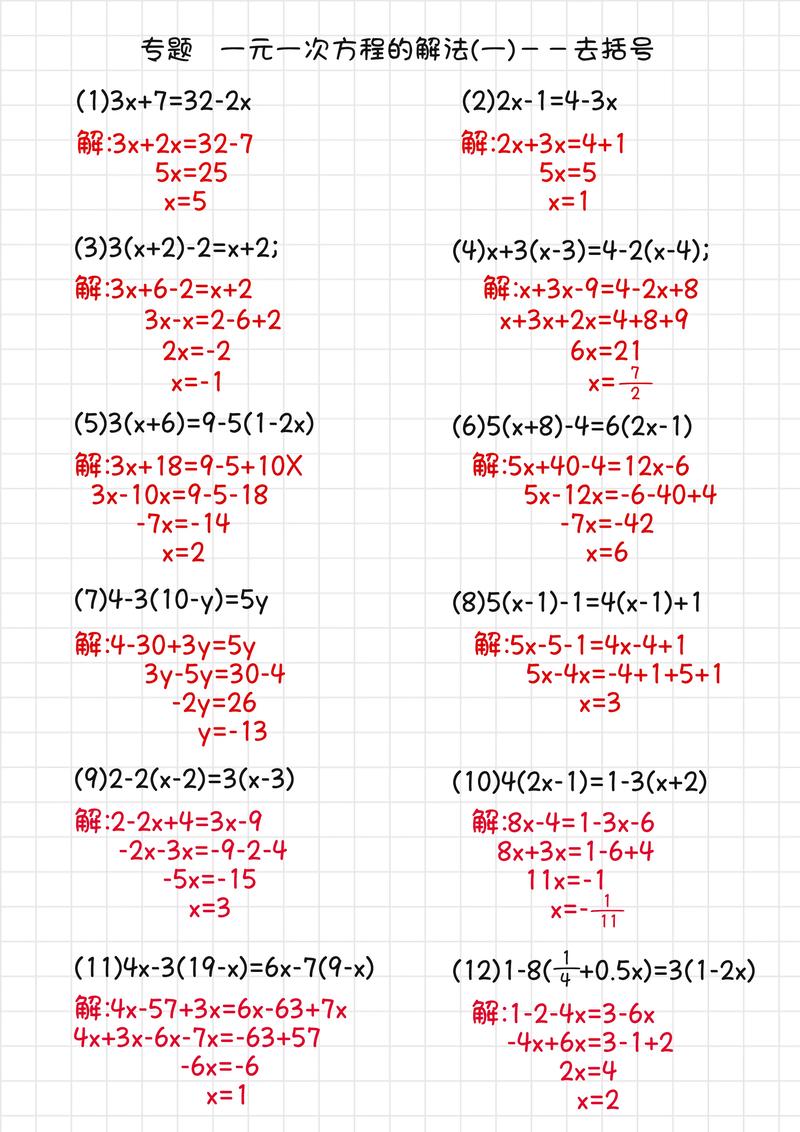 专题 一元一次方程的解法(一)--去括号
(1)3x+7=32-2x
解:3x+2x=32-7
5x=25
x=5
(2)2x-1=4-3x
解:2x+3x=4+1
5x=5
x=1
(3)3(x+2)-2=x+2;
解:3x+6-2=x+2
3x-x=2-6+2
2x=-2
x=-1
(4)x+3(x-3)=4-2(x-4);
解:x+3x-9=4-2x+8
x+3x+2x=4+8+9
6x=21
x=7/2
(5)3(x+6)=9-5(1-2x)
解:3x+18=9-5+10X
3x-10x=9-5-18
-7x=-14
x=2
(6)5(x+8)-4=6(2x-1)
解:5x+40-4=12x-6
5x-12x=-6-40+4
-7x=-42
x=6
(7)4-3(10-y)=5y
解:4-30+3y=5y
3y-5y=30-4
-2y=26
y=-13
(8)5(x-1)-1=4(x-1)+1
解:5x-5-1=4x-4+1
5x-4x=-4+1+5+1
x=3
(9)2-2(x-2)=3(x-3)
解:2-2x+4=3x-9
-2x-3x=-9-2-4
-5x=-15
x=3
(10)4(2x-1)=1-3(x+2)
解:8x-4=1-3x-6
8x+3x=1-6+4
11x=-1
x=-1/11
(11)4x-3(19-x)=6x-7(9-x)
解:4x-57+3x=6x-63+7x
4x+3x-6x-7x=-63+57
-6x=-6
x=1
(12)1-8(1/4+0.5x)=3(1-2x)
解:1-2-4x=3-6x
-4x+6x=3-1+2
2x=4
x=2